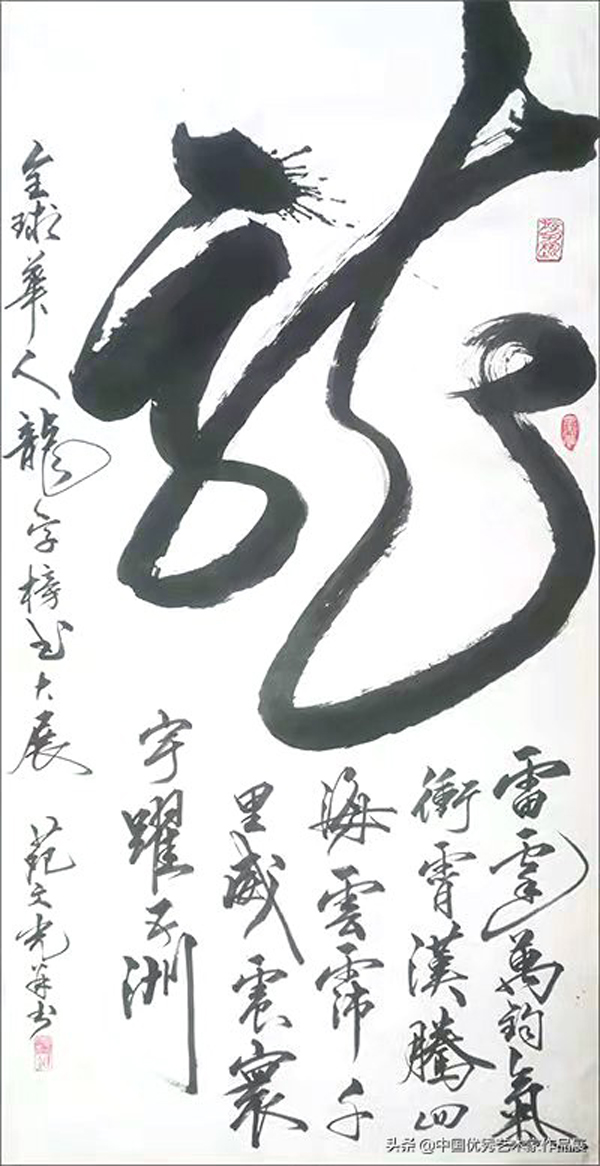 龍
雷霆萬鈞氣
衝霄漢騰四
海雲霈千
里威震寰
宇躍五洲
全球華人龍字榜书大展 文光并书
头条 @中国优秀艺术家作品展